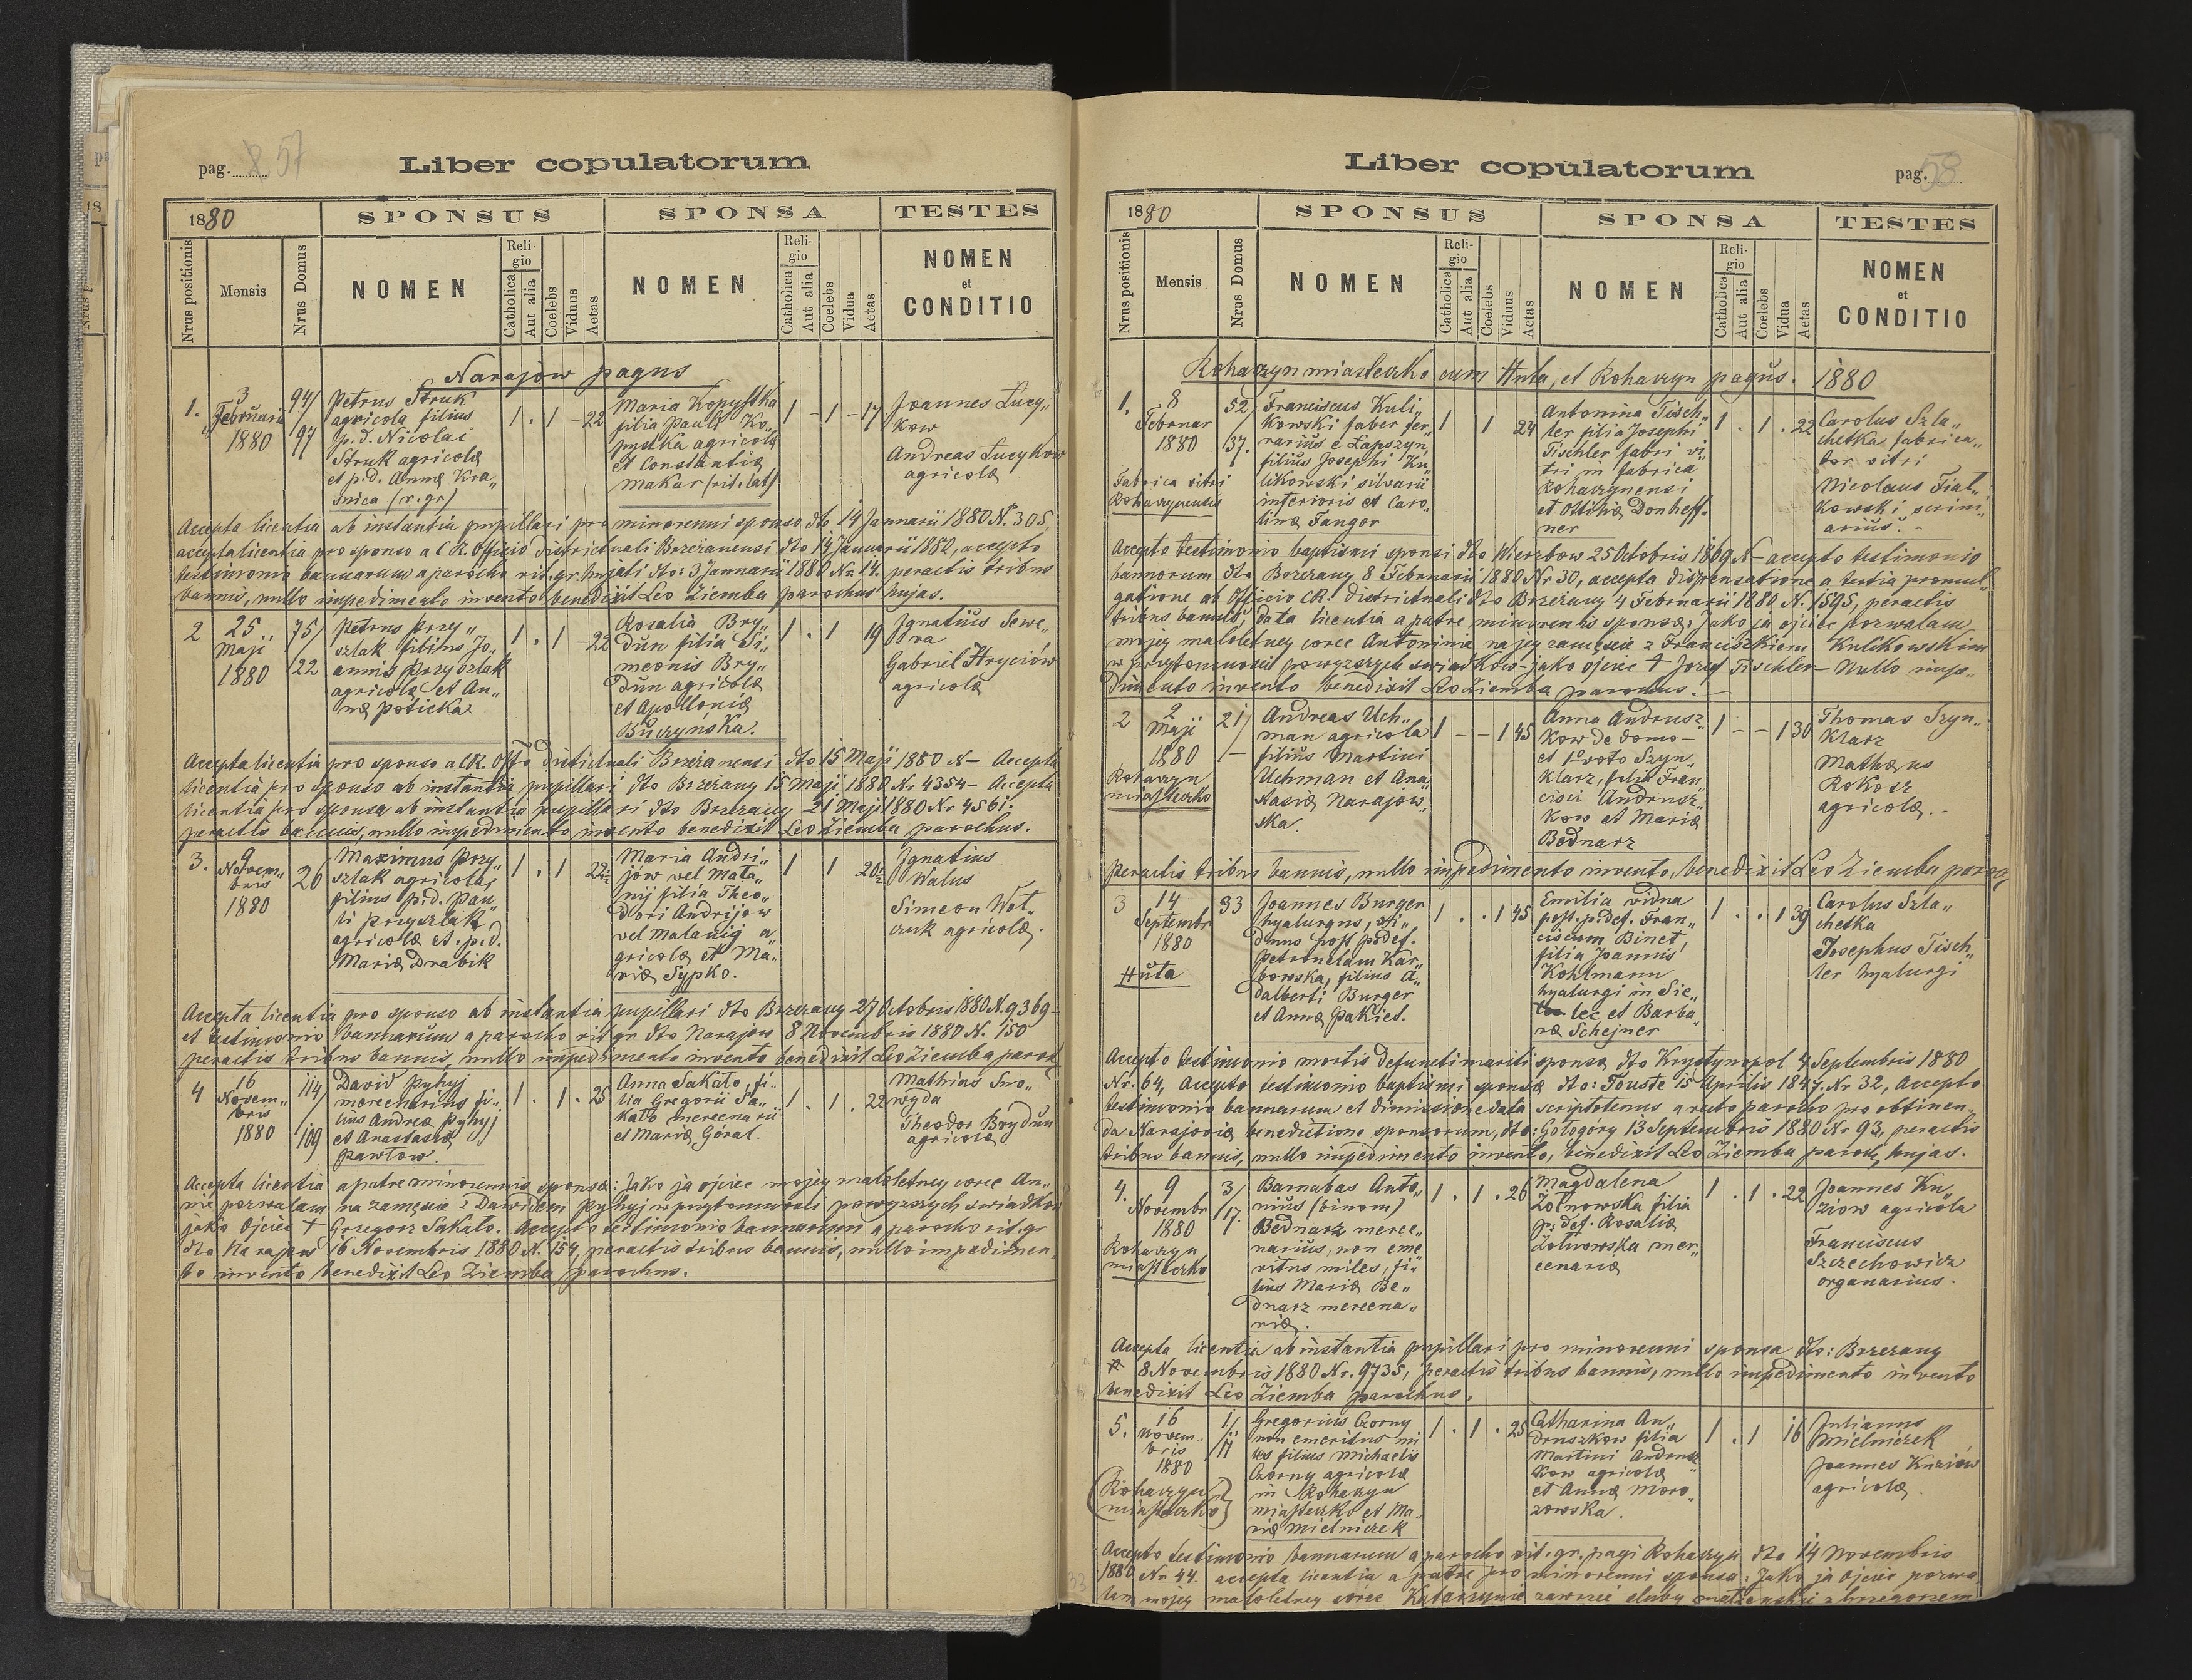 pag. 57
Liber copulatorum
1880
SPONSUS
SPONSA
TESTES
Nrus positionis
Mensis
Nrus Domus
NOMEN
Religio
Catholica
Aut alia
Coelebs
Viduus
Aetas
NOMEN
Religio
Catholica
Aut alia
Coelebs
Vidua
Aetas
NOMEN
et
CONDITIO
Narajow pagus
1.
3
Februarii
1880
94/
97
Petrus Struk
agricola filius
p.d. Nicolai
Struk agricolæ
et p.d. Annæ Kra„
snica (r.gr)
1 . 1 - 22
Maria Kopystka
filia Pauli Ko„
pystka agricolæ
et Constantiæ
Makar (rit. lat)
1 - 1 - 17
Joannes Lucy„
kow
Andreas Lucykow
agricolæ
Accepta licentia ab instantia pupillari pro minorenni sponso dto 14 Januarii 1880 N. 305,
accepta licentia pro sponso a C.R. Officio districtuali Brzeżanensi dto 14 Januarii 1882, accepto
testimonio bannorum a parocho rit. gr. hujati dto: 3 Januarii 1880 Nr. 14. peractis tribus
bannis, nullo impedimento invento benedixit Leo Ziemba parochus hujas.
2
25
Maji
1880
75/
22
Petrus Przy„
szlak filius Jo„
annis Przyszlak
agricolæ et An„
næ Poticka
1 . 1 - 22
Rosalia Bry„
dun filia Si„
meonis Bry„
dun agricolæ
et Apolloniæ
Buczyńska.
1 . 1 19
Ignatius Sewe„
ra
Gabriel Hryciów
agricolæ
Accepta licentia pro sponso a C.R. Offo districtuali Brzeżanensi dto 15 Maji 1880 N — Accepta
licentia pro sponso ab instantia pupillari dto Brzeżany 15 Maji 1880 Nr 4354 — Accepta
licentia pro sponsa ab instantia pupillari dto Brzeżany 21 Maji 1880 Nr 4561.
peractis bannis, nullo impedimento invento benedixit Leo Ziemba parochus.
3.
9
Novem„
bris
1880
26
Maximus Przy„
szlak agricola,
filius p.d. Pau„
li Przyszlak
agricolæ et p.d.
Mariæ Drabik
1 . 1 22
Maria Andri„
jów vel Mata„
nij filia Theo„
dori Andrijow
vel Matanij a
gricolæ et Ma„
riæ Sypko.
1 1 20
Ignatius
Walus
Simeon Wol„
czuk agricolæ.
Accepta licentia pro sponso ab instantia pupillari dto Brzeżany 27 Octobris 1880 N. 9369—
et testimonio bannorum a parocho rit gr dto Narajow 8 Novembris 1880 N. 150
peractis tribus bannis, nullo impedimento invento benedixit Leo Ziemba paroch
4
16
Novem„
bris
1880
114/
109
David Pyhyj
mercenarius fi„
lius Andreæ Pyhyj
et Anastasiæ
Pawlow.
1 . 1 . 25
Anna Sakato, fi„
lia Gregorii Sa„
kato mercenarii
et Mariæ Góral.
1 . 1 . 22
Mathias Smo„
wyda
Theodor Brydun
agricolæ
Accepta licentia a patre minorennis sponsæ: Jako ja ojciec mojej małoletney corce An„
nie pozwalam na zamęscie z Dawidem Pyhyj w przytomności powyzszych swiadkow
jako Ojciec + Grzegorz Sakato. Accepto testimonio bannorum a parocho rit. gr
dto Narajow 16 Novembris 1880 N. 154, peractis tribus bannis, nullo impedimen„
to invento benedixit Leo Ziemba parochus.
Liber copulatorum
pag. 58
1880
SPONSUS
SPONSA
TESTES
Nrus positionis
Mensis
Nrus Domus
NOMEN
Religio
Catholica
Aut alia
Coelebs
Viduus
Aetas
NOMEN
Religio
Catholica
Aut alia
Coelebs
Vidua
Aetas
NOMEN
et
CONDITIO
Rohaczyn miasteczko cum Huta, et Rohaczyn pagus. 1880
1.
8
Februar
1880
Fabrica vitri
Rohaczynensis
52/
37.
Franciscus Kuli„
kowski faber fer„
rarius e Łapszyn,
filius Josephi Ku„
likowski silvarii
inferioris et Caro„
linæ Fangor
1 1 24
Antonina Tisch„
ler filia Josephi
Tischler fabri vi„
tri in fabrica
Rohaczynensi
et Ottiliæ Donheff„
ner
1 . 1 . 22
Carolus Szla„
chetka fabrica„
tor vitri
Nicolaus Fiat„
kowski scrini„
arius. -
Accepto testimonio baptismi sponsi dto Wierzbow 25 Octobris 1869 N — accepto testimonio
bannorum dto Brzeżany 8 Februarii 1880 Nr 30, accepta dispensatione a tertia promul„
gatione ab Officio C.R. districtuali dto Brzeżany 4 Februarii 1880 N. 1595, peractis
tribus bannis, data licentia a patre minorennis sponsæ: Jako ja ojciec pozwalam
mojej małoletney corce Antoninie na jej zamęscie z Franciszkiem Kulikowskim
w przytomności powyższych swiadków — jako ojciec + Jozef Tischler — Nullo impe„
dimento invento benedixit Leo Ziemba parochus. —
2
2
Maji
1880
Rohaczyn
miasteczko
21/
—
Andreas Uch„
man agricola
filius Martini
Uchman et Ana„
stasiæ Narajow„
ska.
1 - - 1 45
Anna Andrusz„
kow de domo —
et 1o voto Szyn„
klarz, filia Fran„
cisci Andrusz„
kow et Mariæ
Bednarz
1 - - 1 30
Thomas Szyn„
klarz
Mathæus
Rokosz
agricolæ. -
Peractis tribus bannis, nullo impedimento invento, benedixit Leo Ziemba paroch
3
14
Septembr
1880
Huta
33
Joannes Burger
hyalurgus, vi„
duus post p.def.
Petronelam Kar„
bowska, filius A„
dalberti Burger
et Annæ Pakiet.
1 . . 1 45
Emilia vidua
post. p. def. Fran„
ciscum Binet,
filia Joannis
Kohlmann
hyalurgi in Sie„
lec et Barba„
ræ Schejner
1 . . 1 39
Carolus Szla„
chetka
Josephus Tisch„
ler hyalurgi
Accepto testimonio mortis defuncti mariti sponsæ dto Krystynopol 4 Septembris 1880
Nr. 64, Accepto testimonio baptismi sponsæ dto: Touste 15 Aprilis 1847. Nr 32, Accepto
testimonio bannorum et dimissione data scriptotenus a ruto parocho pro obtinen„
da Narajoviæ benedictione sponsorum, dto: Gołogóry 13 Septembris 1880 Nr 93, peractis
tribus bannis, nullo impedimento invento, benedixit Leo Ziemba paroch, hujas.
4.
9
Novembr
1880
Rohaczyn
miasteczko
3/
17.
Barnabas Anto„
nius (binom)
Bednarz merce„
narius, non eme„
ritus miles, fi„
lius Mariæ Be„
dnarz mercena„
riæ.
1 . 1 . 26
Magdalena
Zotnowska filia
p. def. Rosaliæ
Zotnowska mer„
cenariæ
1 . 1 . 22
Joannes Ku„
ziow agricola
Franciscus
Szczechowicz
organarius.
Accepta licentia ab instantia pupillari pro minorenni sponsa dto: Brzeżany
8 Novembris 1880 Nr. 9735, peractis tribus bannis, nullo impedimento invento
benedixit Leo Ziemba parochus.
5.
16
Novem„
bris
1880
(Rohaczyn
miasteczko)
1/
11
Gregorius Czorny
non emeritus mi
les filius Michaelis
Czorny agricolæ
in Rohaczyn
miasteczko et Ma„
riæ Mielniczek
1 . 1 . 25
Catharina An„
druszkow filia
Martini Andrusz
kow agricolæ
et Annæ Moro„
zowska.
1 . 1 16
Julianus
Mielniczek
Joannes Kuziów
agricolæ.
Accepto testimonio bannorum a parocho rit. gr. pagi Rohaczyn dto 14 Novembris
1880 Nr 44. accepta licentia a patre pro minorenni sponsa: Jako ja Ojciec pozwa
lam mojej małoletney córce Katarzynie zawrzeć śluby małżenskie z Grzegorzem